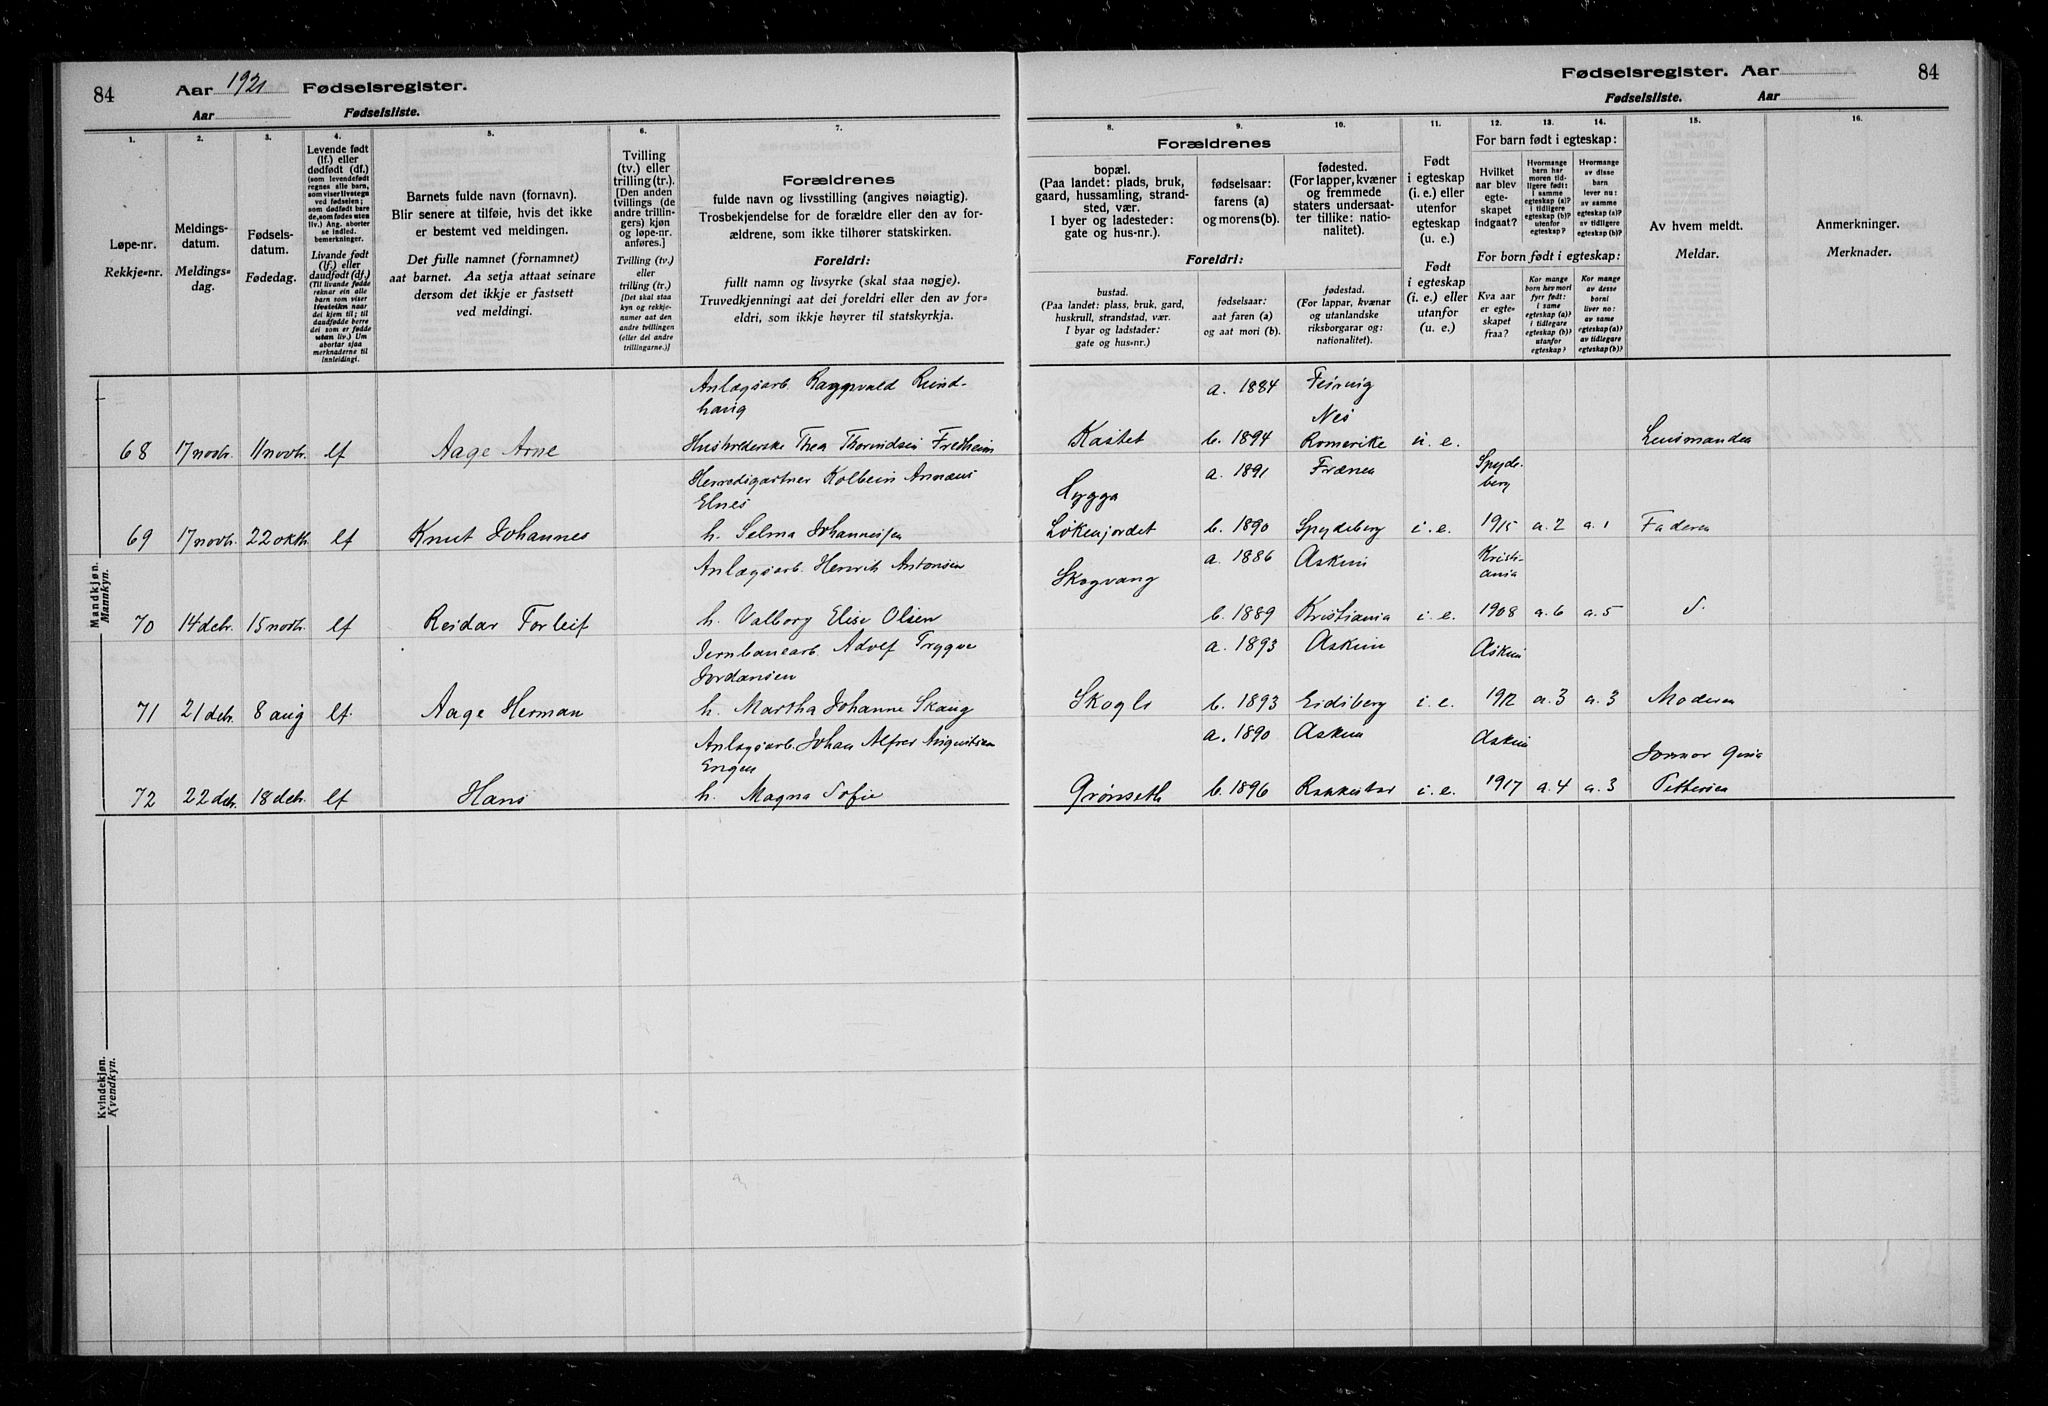 84
Aar 1921 Fødselsregister.
Aar Fødselsliste.
Fødselsregister. Aar
84
Fødselsliste. Aar
1.
Løpe-nr.
Rekkje-nr.
2.
Meldings-
datum.
Meldings-
dag.
3.
Fødsels-
datum.
Fødedag.
4.
Levende født
(lf.) eller
dødfødt (df.)
(som levendefødt
regnes alle barn,
som viser livstegn
ved fødselen;
som dødfødt bare
de, som fødes uten
liv.) Ang. aborter
se indled.
bemerkninger.
Livande født
(lf.) eller
daudfødt (df.)
(Til livande fødde
reknar ein alle
barn som viser
livsteikn naar
dei kjem til; til
daudfødde berre
dei som er fødde
utan liv.) Um
abortar sjaa
merknaderne til
innleidingi.
5.
Barnets fulde navn (fornavn).
Blir senere at tilføie, hvis det ikke
er bestemt ved meldingen.
Det fulle namnet (fornamnet)
aat barnet. Aa setja attaat seinare
dersom det ikkje er fastsett
ved meldingi.
6.
Tvilling
(tv.) eller
trilling (tr.).
[Den anden
tvillings (de
andre trillin-
gers) kjøn
og løpe-nr.
anføres.]
Tvilling (tv.)
eller
trilling (tr.)
[Det skal staa
kyn og rekkje-
numer aat den
andre tvillingen
(eller dei andre
trillingarne.)]
7.
Forældrenes
fulde navn og livsstilling (angives nøiagtig).
Trosbekjendelse for de forældre eller den av for-
ældrene, som ikke tilhører statskirken.
Foreldri:
fullt namn og livsyrke (skal staa nøgje).
Truvedkjenningi aat dei foreldri eller den av for-
eldri, som ikkje høyrer til statskyrkja.
Forældrenes
8.
bopæl.
(Paa landet: plads, bruk,
gaard, hussamling, strand-
sted, vær.
I byer og ladesteder:
gate og hus-nr.).
9.
fødselsaar:
farens (a)
og morens(b).
10.
fødested.
(For lapper, kvæner
og fremmede
staters undersaat-
ter tillike: natio-
nalitet).
Foreldri:
bustad.
(Paa landet: plass, bruk, gard,
huskrull, strandstad, vær.
I byar og ladstader:
gate og hus-nr.)
fødselsaar:
aat faren (a)
og aat mori (b).
fødestad.
(For lappar, kvænar
og utanlandske
riksborgarar og:
nationalitet).
11.
Født
i egteskap
(i. e.) eller
utenfor
egteskap
(u. e.)
Født
i egteskap
(i. e.) eller
utanfor
(u. e.)
For barn født i egteskap:
12.
Hvilket
aar blev
egte-
skapet
indgaat?
13.
Hvormange
barn har
moren tid-
ligere født:
i samme
egteskap (a)?
i tidligere
egteskap (b)?
utenfor
egteskap?
14.
Hvormange
av disse
barn
lever nu:
av samme
egteskap (a)?
av tidligere
egteskap (b)?
For born født i egteskap:
Kva aar
er egte-
skapet
fraa?
Kor mange
born hev mori
fyrr født:
i same
egteskap (a)?
i tidlegare
egteskap (b)?
utanfor
egteskap?
Kor mange
av desse
borni
liver no:
av same
egteskap (a)?
av tidlegare
egteskap (b)?
15.
Av hvem meldt.
Meldar.
16.
Anmerkninger.
Merknader.
Mandkjøn.
Mannkyn.
Anlægsarb. Ragnvald Rund-
haug
a. 1884 Feiring
Nes
68 17 novbr. 11 novbr. lf Aage Arne Husholderske Thea Thorvidsen Fredheim Kastet b. 1894 Romerike u. e. Lensmanden
Herredsgartner Kolbein Annæus
Elnes
Hygga a. 1891 Frænen Spyde-
berg
69 17 novbr. 22 oktbr. lf Knut Johannes h. Selma Johannessen Løkenjordet b. 1890 Spydeberg i. e. 1915 a. 2 a. 1 Faderen
Anlægsarb. Henrik Antonsen Skogvang a. 1886 Askim Kristi-
ania
70 14 debr. 15 novbr. lf Reidar Torleif h. Valborg Elise Olsen b. 1889 Kristiania i. e. 1908 a. 6 a. 5 d.
Jernbanearb. Adolf Trygve
Jordansen
a. 1893 Askim Askim
71 21 debr. 8 aug lf. Aage Herman h. Martha Johanne Skaug Skogly b. 1893 Eidsberg i. e. 1912 a. 3 a. 3 Moderen
Anlægsarb. Johan Alfred Augustsen
Engen
a. 1890 Askim Askim Jormor
72 22 debr. 18 debr. lf Hans h. Magna Sofie Grønseth b. 1896 Rakkestad i. e. 1917 a. 4 a. 3 Pettersen
Kvindekjøn.
Kvendkyn.